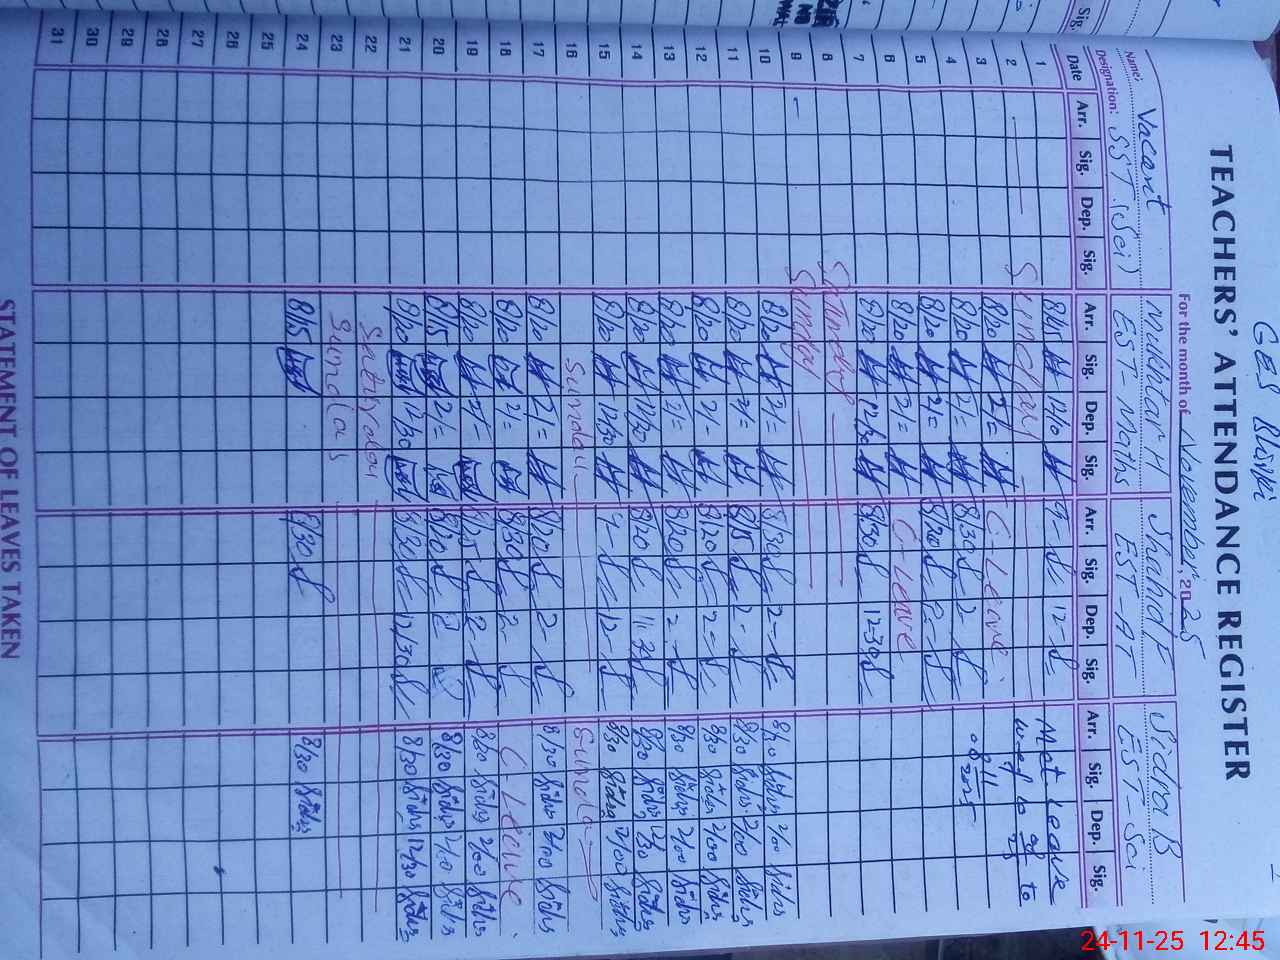 GES
TEACHERS' ATTENDANCE REGISTER
For the month of November, 2025
Name: Vacant Mukhtar H Shahid F Sidra B
Designation: SST (Sci) EST-Maths EST-AT EST-Sci
Date Arr. Sig. Dep. Sig. Arr. Sig. Dep. Sig. Arr. Sig. Dep. Sig. Arr. Sig. Dep. Sig.
1 8/15 12/10 9- 12- Mat. Leave
2 Sunday w.e.f to
3 8/20 2/= C-Leave
4 8/20 2/= 8/30 2- 08-11-2025
5 8/20 2/= 8/20 2-
6 8/20 2/= C-Leave
7 8/20 12/30 8/30 12-30
8 Saturday
9 Sunday
10 8/20 2/= 8/30 2- 8/20 Sidra 2/00 Sidra
11 8/20 2/= 8/15 2- 8/30 Sidra 2/00 Sidra
12 8/20 2/- 8/20 2= 8/30 Sidra 2/00 Sidra
13 8/20 2/= 8/20 2- 8/30 Sidra 2/00 Sidra
14 8/20 12/30 8/20 11-30 8/30 Sidra 12/30 Sidra
15 8/20 12/30 9- 12- 8/30 Sidra 2/00 Sidra
16 Sunday Sunday
17 8/20 2/= 8/20 2- 8/30 Sidra 2/00 Sidra
18 8/20 2/= 8/30 2- C-Leave
19 8/20 2/= 8/25 2- 8/20 Sidra 2/00 Sidra
20 8/15 2/= 8/20 2 8/30 Sidra 2/00 Sidra
21 8/20 12/30 8/30 12/30 8/30 Sidra 12/30 Sidra
22 Saturday
23 Sunday
24 8/15 8/30 8/30 Sidra
25
26
27
28
29
30
31
STATEMENT OF LEAVES TAKEN
Sig.
24-11-25 12:45